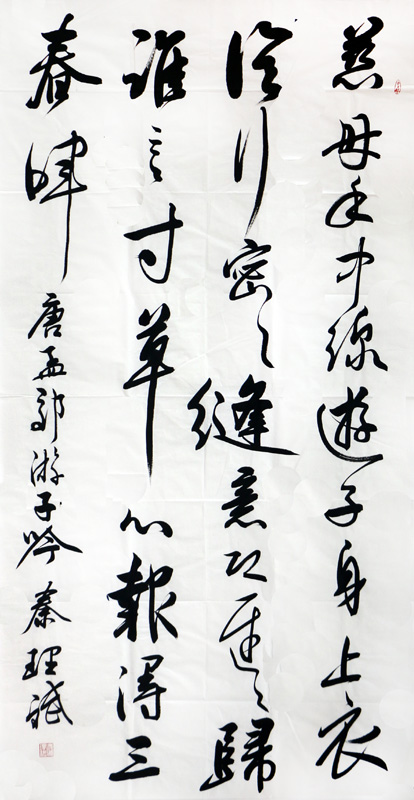 慈母手中線遊子身上衣
臨行密々縫意恐遲々歸
誰言寸草心報得三
春暉 唐孟郊游子吟 秦理斌